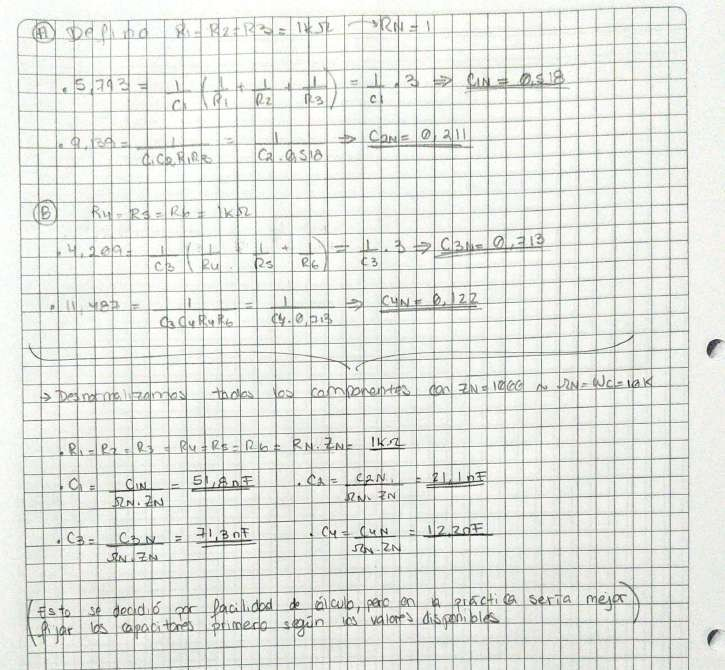 Ⓐ Defino R1=R2=R3=1kΩ → RN=1
.5,793 = 1/C1 (1/R1 + 1/R2 + 1/R3) = 1/C1 . 3 ⇒ C1N = 0,518
.9,139 = 1/C1C2R1R3 = 1/C2.0,518 ⇒ C2N = 0,211
Ⓑ R4=R5=R6 = 1kΩ
.4,209 = 1/C3 (1/R4 + 1/R5 + 1/R6) = 1/C3 . 3 ⇒ C3N = 0,713
.11,487 = 1/C3C4R4R6 = 1/C4.0,713 ⇒ C4N = 0,122
→ Desnormalizamos todos los componentes con ZN=1000 ~ ΩN=Wc=10K
.R1=R2=R3=R4=R5=R6= RN.ZN= 1kΩ
.C1 = C1N/ΩN.ZN = 51,8nF .C2 = C2N/ΩN.ZN = 21,1nF
.C3 = C3N/ΩN.ZN = 71,3nF .C4 = C4N/ΩN.ZN = 12,2nF
(Esto se decidió por facilidad de cálculo, pero en la práctica sería mejor
fijar los capacitores primero según los valores disponibles)